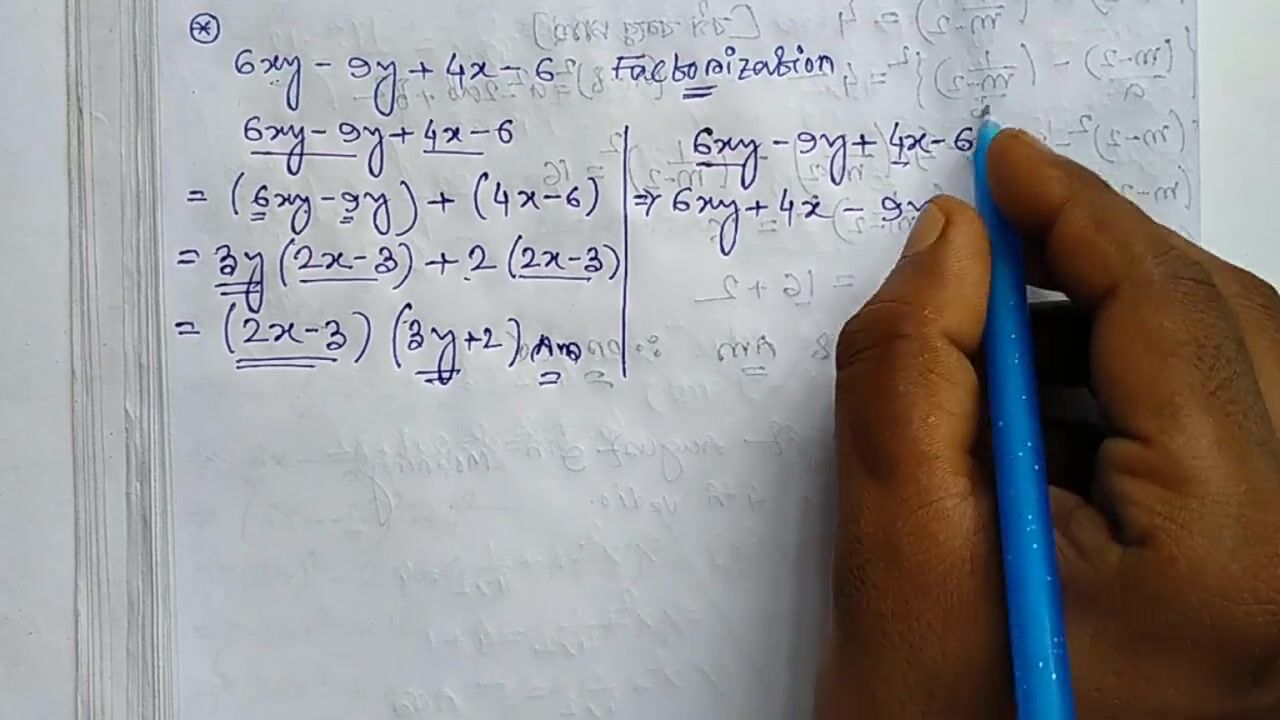 6xy - 9y + 4x - 6 Factorization
6xy - 9y + 4x - 6
= (6xy - 9y) + (4x - 6)
= 3y (2x - 3) + 2 (2x - 3)
= (2x - 3) (3y + 2) Ans
6xy - 9y + 4x - 6
⇒ 6xy + 4x - 9y